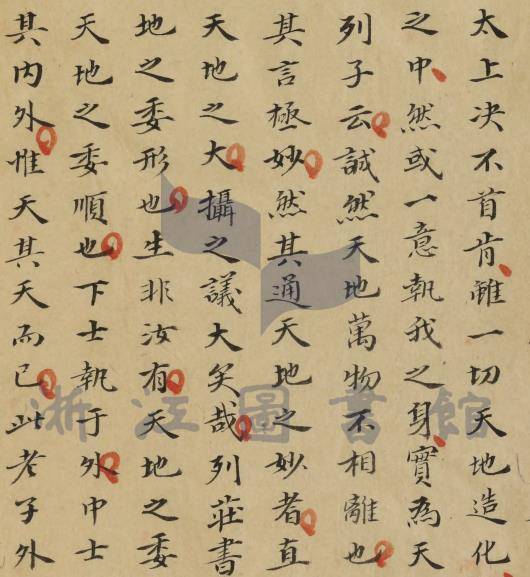 太上决不首肯雖一切天地造化
之中然或一意執我之身實為天
列子云誠然天地萬物不相離也
其言極妙然其通天地之妙者直
天地之大攝之議大矣哉列莊書
地之委形也生非汝有天地之委
天地之委順也下士執于外中士
其内外惟天其天而已此老子外
浙江圖書館